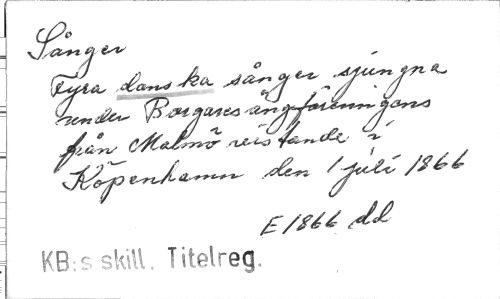 Sånger
Fyra danska sånger sjungna
under Borgaresångföreningens
från Malmö vistande i
Köpenhamn den 1 juli 1866
E 1866 dd
KB:s skill. Titelreg.